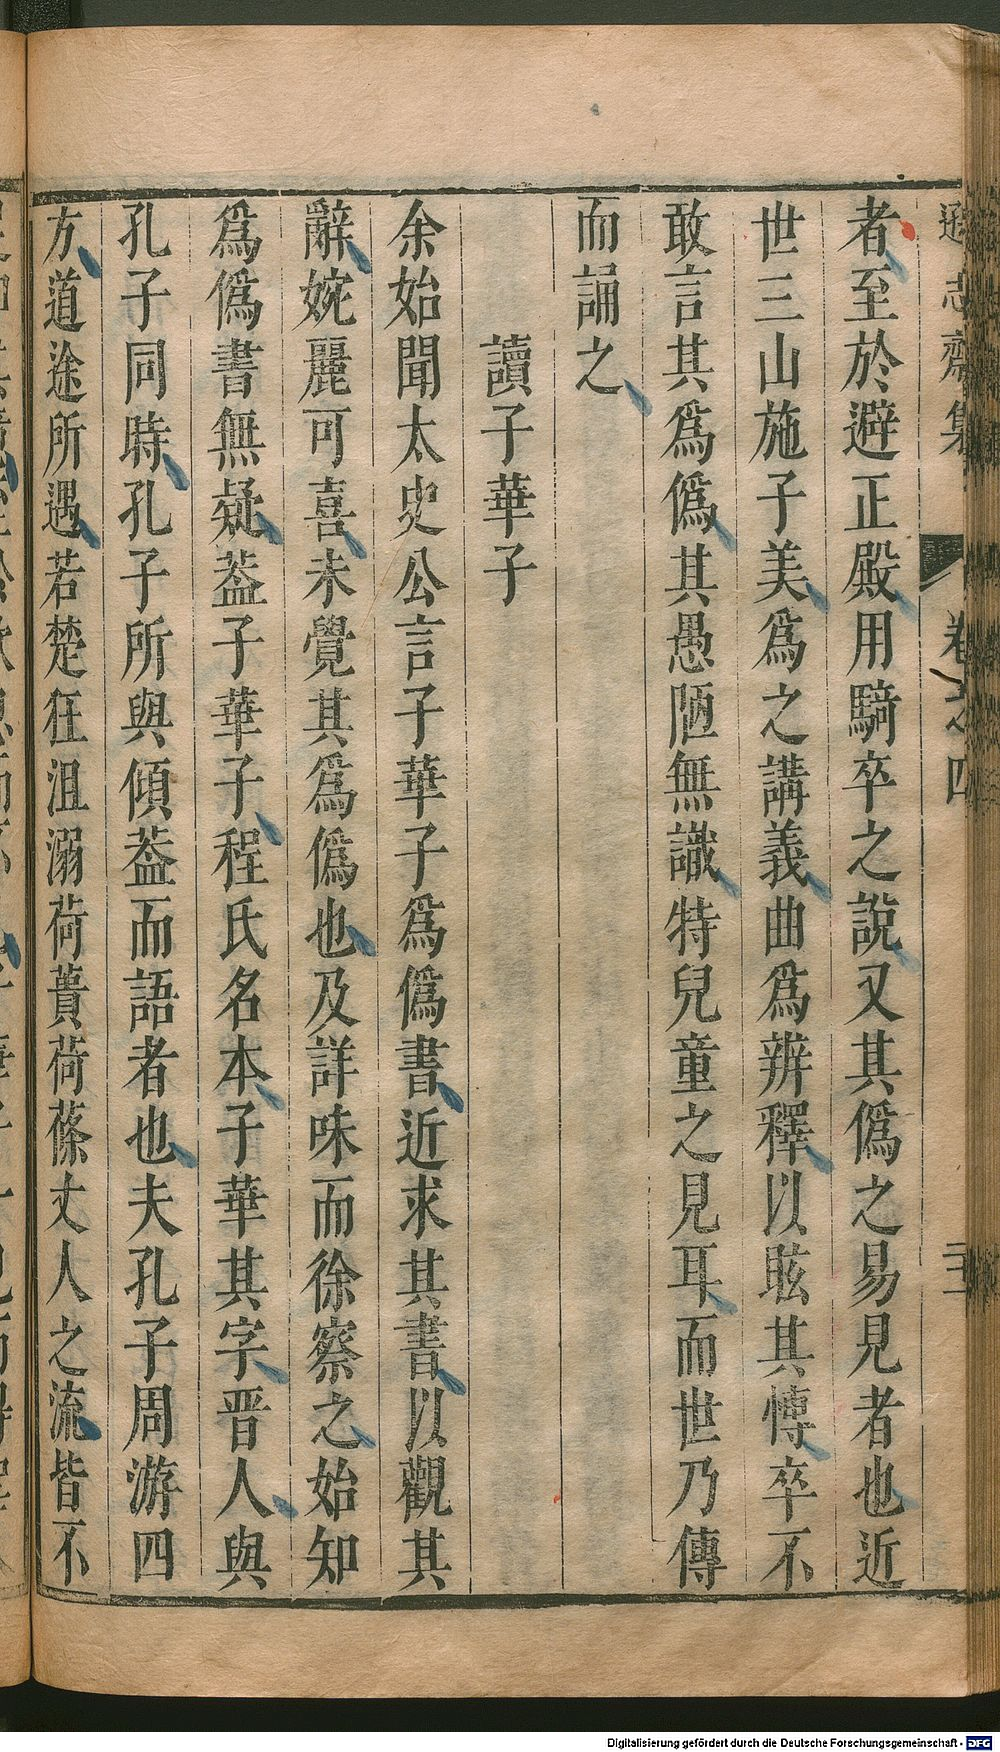 遜志齋集
卷之四
者至於避正殿用騎卒之說又其僞之易見者也近
世三山施子美爲之講義曲爲辨釋以眩其愽卒不
敢言其爲僞其愚陋無識特兒童之見耳而世乃傳
而誦之
讀子華子
余始聞太史公言子華子爲僞書近求其書以觀其
辭婉麗可喜未覺其爲僞也及詳味而徐察之始知
爲僞書無疑葢子華子程氏名本子華其字晋人與
孔子同時孔子所與傾葢而語者也夫孔子周游四
方道途所遇若楚狂沮溺荷蕢荷蓧丈人之流皆不
Digitalisierung gefördert durch die Deutsche Forschungsgemeinschaft - DFG